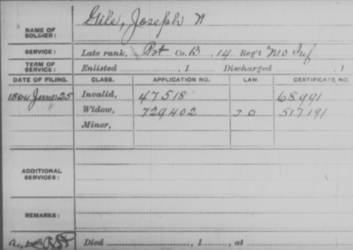 NAME OF SOLDIER: Gile, Joseph N
SERVICE: Late rank, Pvt Co. B, 14 Reg't Mo Inf
TERM OF SERVICE: Enlisted , 1 Discharged , 1
DATE OF FILING. CLASS. APPLICATION NO. LAW. CERTIFICATE NO.
1864 June 25 Invalid, 47518 68991
Widow, 729402 517191
Minor,
ADDITIONAL SERVICES:
REMARKS:
Died , 1 , at